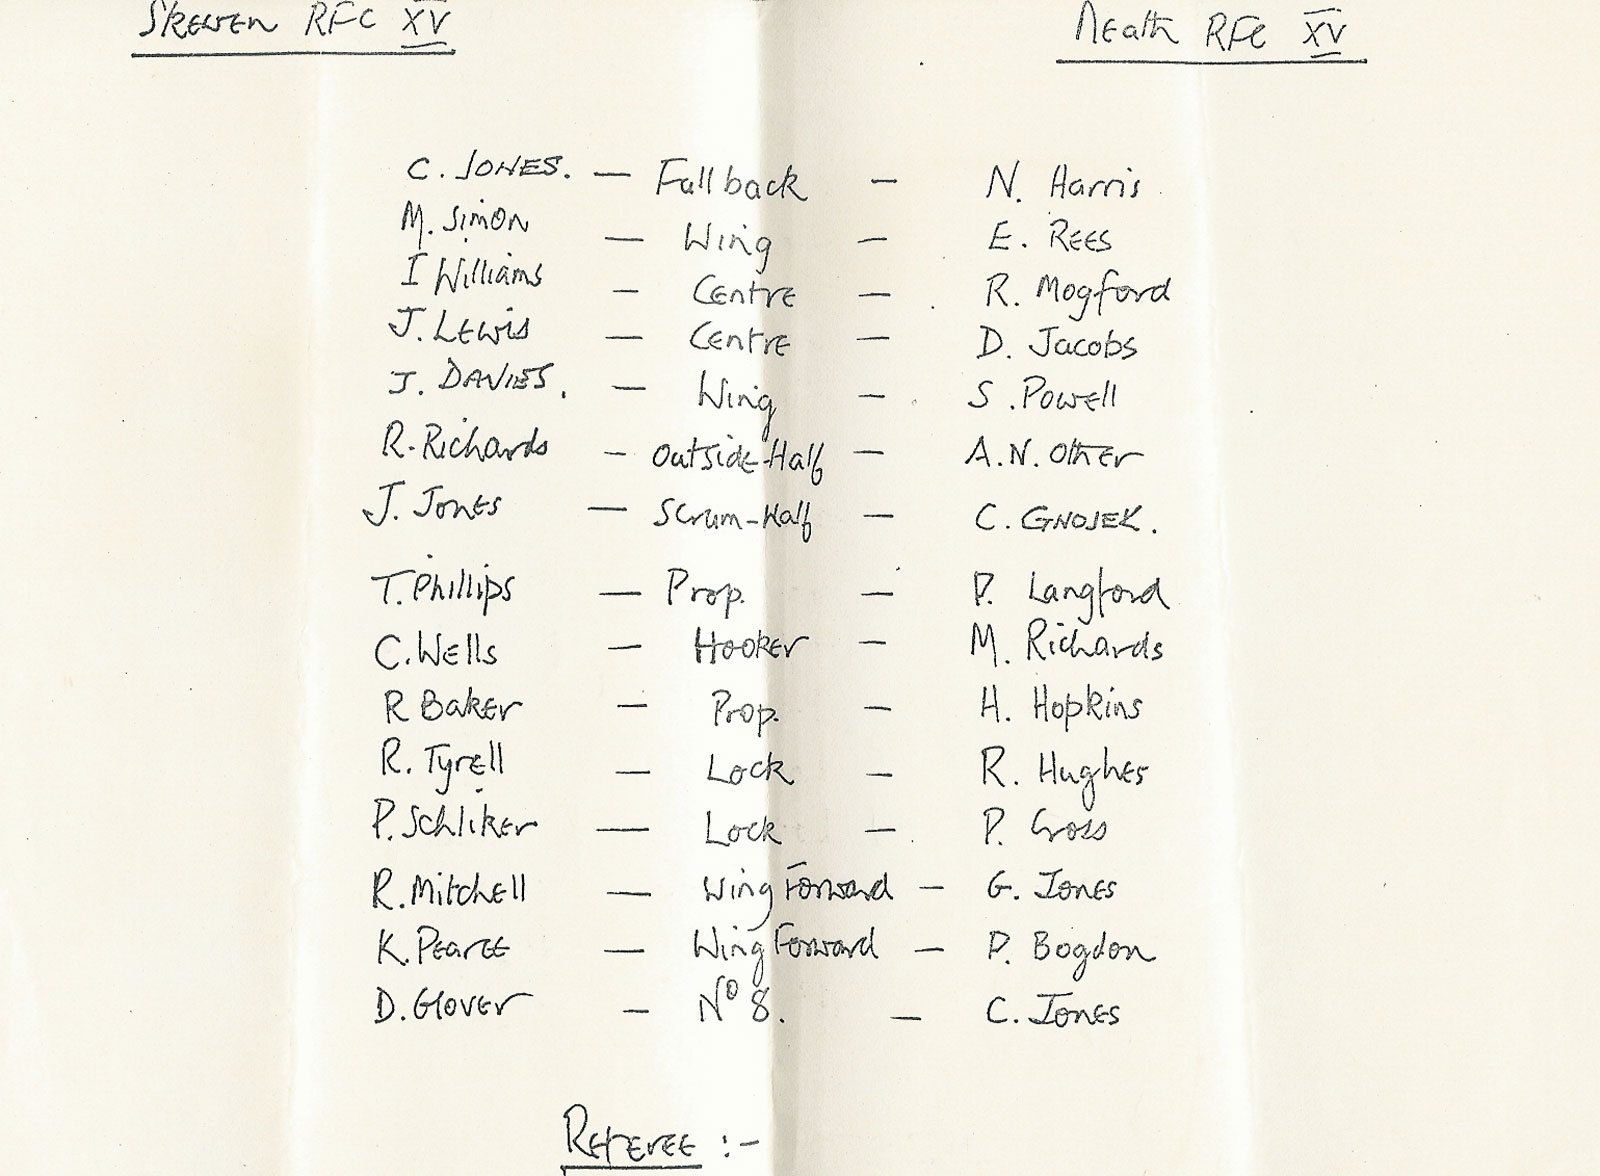 Skewen RFC XV Neath RFC XV
C. JONES. — Fullback — N. Harris
M. Simon — Wing — E. REES
I Williams — Centre — R. Mogford
J. Lewis — Centre — D. Jacobs
J. DAVIES. — Wing — S. Powell
R. Richards — Outside-Half — A.N. Other
J. Jones — Scrum-Half — C. GNOJEK.
T. Phillips — Prop. — P. Langford
C. Wells — Hooker — M. Richards
R Baker — Prop. — H. Hopkins
R. Tyrell — Lock — R. Hughes
P. Schliker — Lock — P.
R. Mitchell — Wing Forward — G. Jones
K. Pearce — Wing Forward — P. Bogdon
D. Glover — Nº 8. — C. Jones
Referee :-